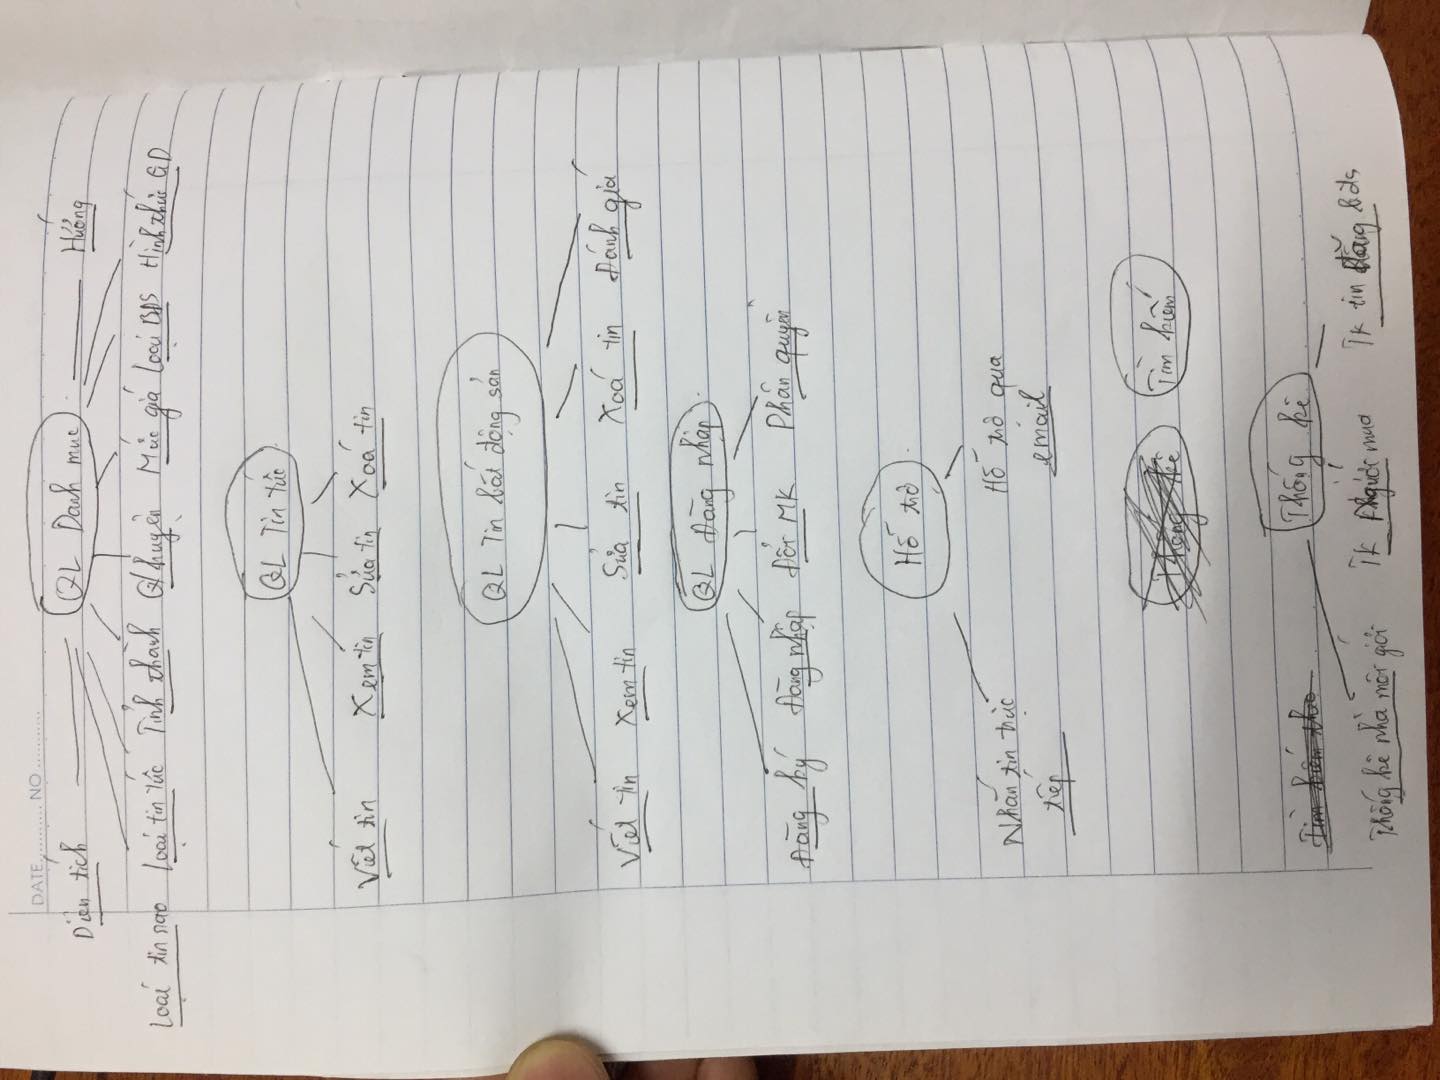 DATE........... NO ............
QL Danh mục
Diện tích Hướng
Loại tin rao Loại tin tức Tỉnh thành Q/huyện Mức giá Loại BĐS Hình thức GD
QL Tin tức
Viết tin Xem tin Sửa tin Xoá tin
QL Tin bất động sản
Viết tin Xem tin Sửa tin Xoá tin Đánh giá
QL Đăng nhập
Đăng ký Đăng nhập Đổi MK Phân quyền
Hỗ trợ
Nhắn tin trực Hỗ trợ qua
tiếp email
Thống kê Tìm kiếm
Tìm kiếm theo Thống kê
Thống kê nhà môi giới TK Người mua TK tin đăng bđs